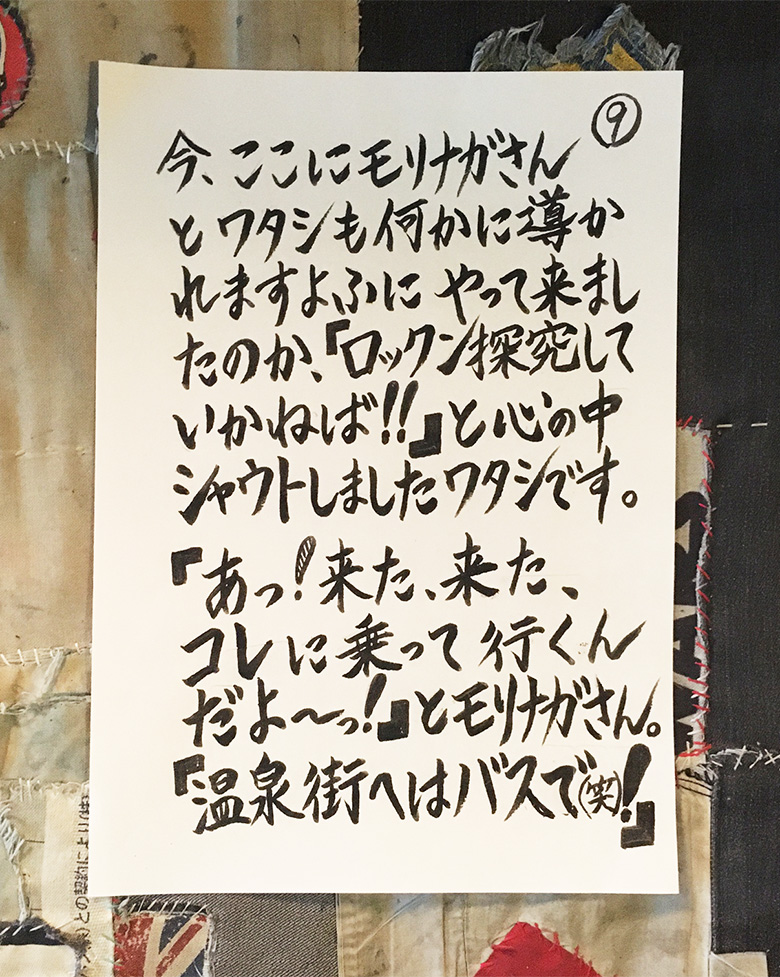 ⑨
今、ここにモリナガさん
とワタシも何かに導か
れますよふに やって来まし
たのか、『ロックン探究して
いかねば!!』と心の中
シャウトしましたワタシです。
『あっ!来た、来た、
コレに乗って行くん
だよ〜っ!』とモリナガさん。
『温泉街へはバスで(笑)!』